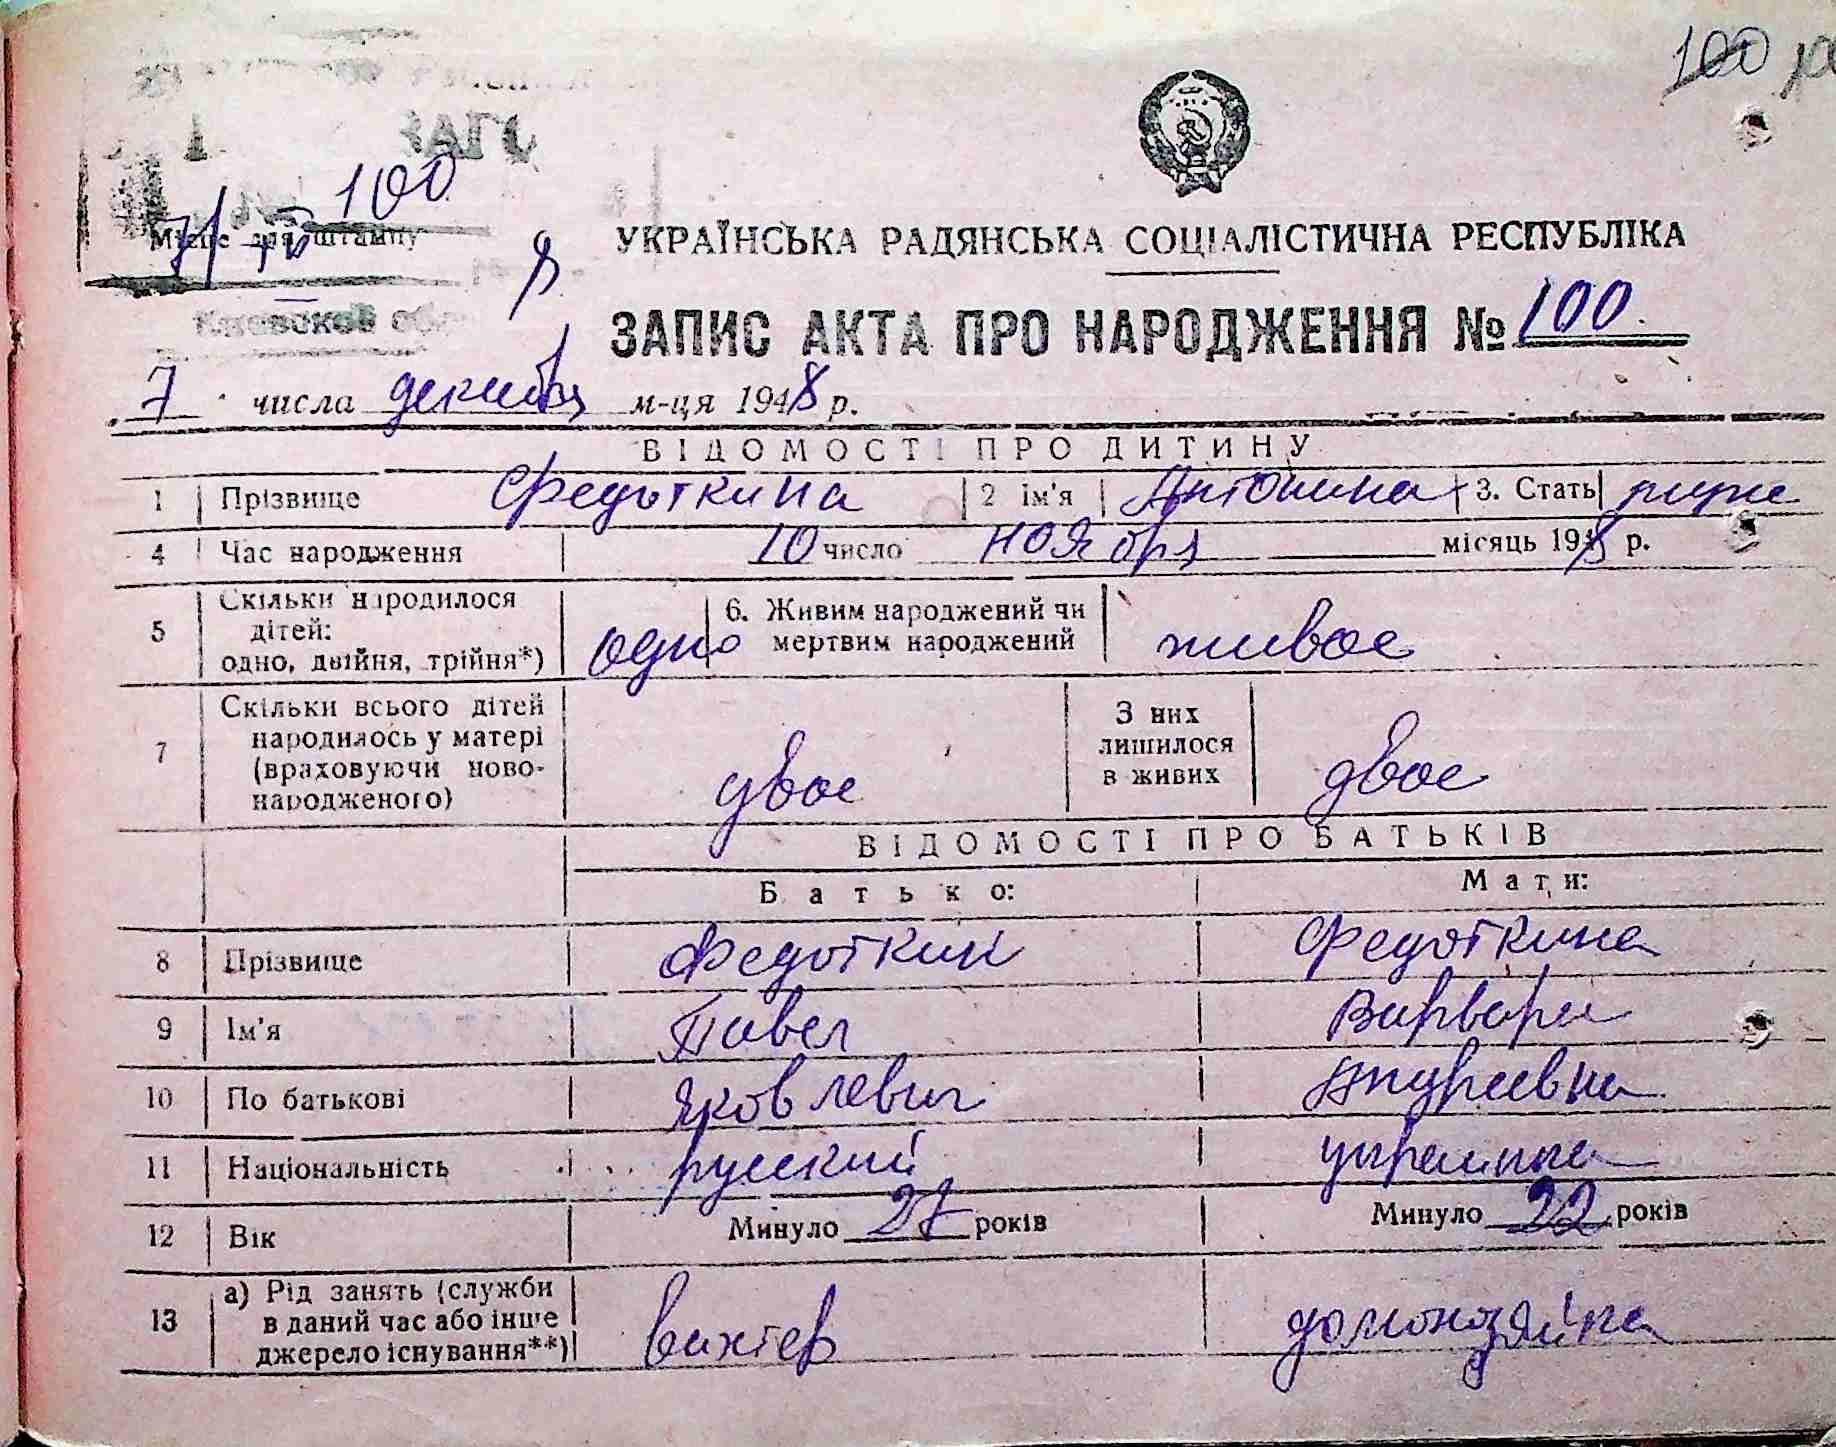 100
ЗАГС
100
Місце для штампу
Киевской обл
УКРАЇНСЬКА РАДЯНСЬКА СОЦІАЛІСТИЧНА РЕСПУБЛІКА
ЗАПИС АКТА ПРО НАРОДЖЕННЯ № 100.
7 числа декабря м-ця 1948 р.
ВІДОМОСТІ ПРО ДИТИНУ
1 Прізвище Федоткина 2 ім'я Антонина 3. Стать
4 Час народження 10 число ноября місяць 1948 р.
5 Скільки народилося дітей: одно, двійня, трійня*) одно 6. Живим народжений чи мертвим народжений живое
7 Скільки всього дітей народилось у матері (враховуючи ново-народженого) двое З них лишилося в живих двое
ВІДОМОСТІ ПРО БАТЬКІВ
Батько: Мати:
8 Прізвище Федоткин Федоткина
9 Ім'я Павел Варвара
10 По батькові Яковлевич
11 Національність русский украинка
12 Вік Минуло 27 років Минуло 22 років
13 а) Рід занять (служби в даний час або інше джерело існування**) вахтер домохозяйка